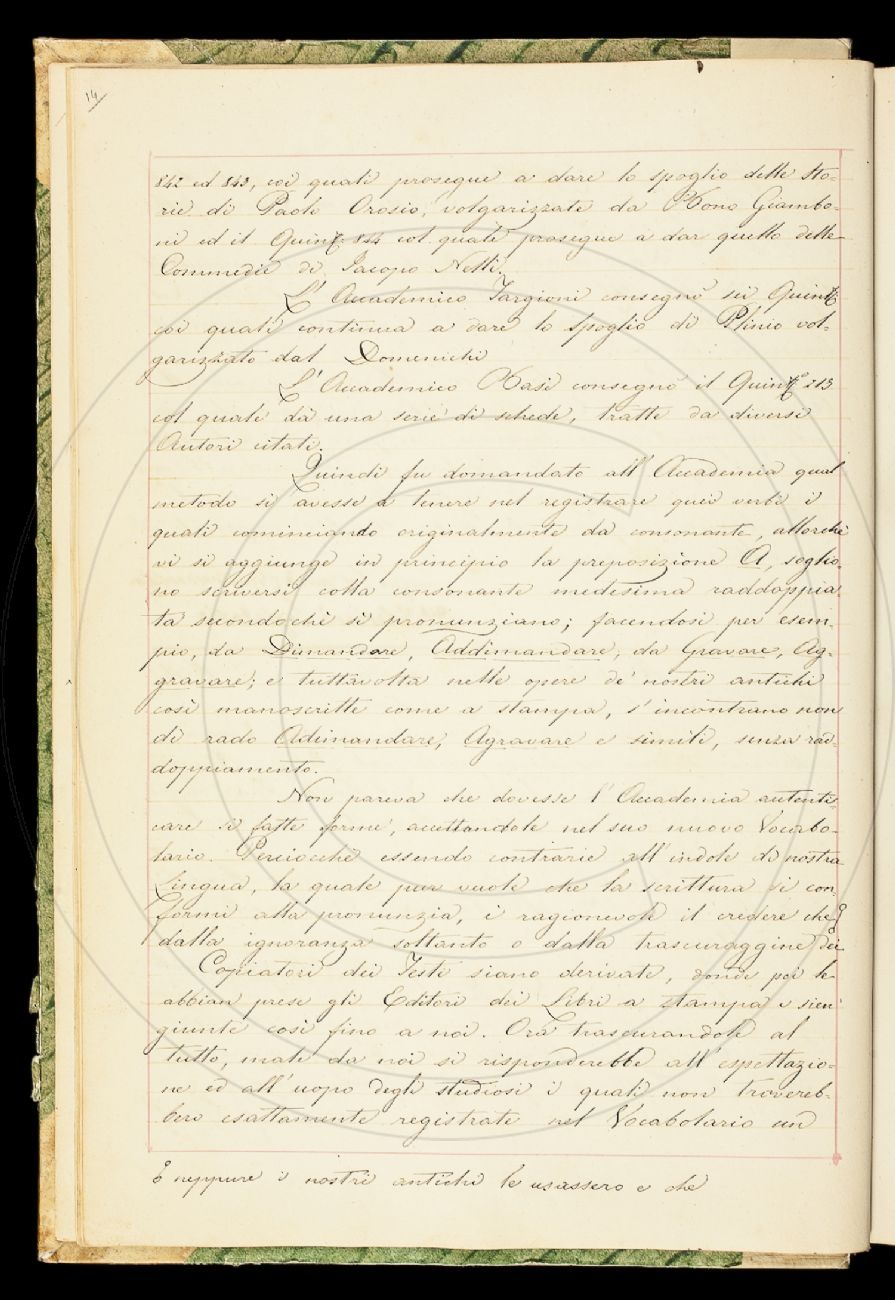 14
842 ed 843, coi quali prosegue a dare lo spoglio delle Sto-
rie di Paolo Orosio, volgarizzate da Bono Giambo-
ni ed il Quint.° 844 col quale prosegue a dar quello delle
Commedie di Iacopo Nelli.
L'Accademico Targioni consegnò sei Quint.i
coi quali continua a dare lo spoglio di Plinio vol-
garizzato dal Domenichi
L'Accademico Basi consegnò il Quint.° 213
col quale dà una serie di schede, tratte da diversi
Autori citati.
Quindi fu domandato all'Accademia qual
metodo si avesse a tenere nel registrare quei verbi i
quali cominciando originalmente da consonante, allorchè
vi si aggiunge in principio la preposizione A, soglio-
no scriversi colla consonante medesima raddoppia-
ta secondochè si pronunziano; facendosi per esem-
pio, da Dimandare, Addimandare; da Gravare, Ag-
gravare; e tuttavolta nelle opere de' nostri antichi
così manoscritte come a stampa, s'incontrano non
di rado Adimandare, Agravare e simili, senza rad-
doppiamento.
Non pareva che dovesse l'Accademia autenti-
care sì fatte forme, accettandole nel suo nuovo Vocabo-
lario. Perciocchè essendo contrarie all'indole di nostra
Lingua, la quale pur vuole che la scrittura si con
formi alla pronunzia, è ragionevole il credere che
dalla ignoranza soltanto o dalla trascuraggine dei
Copiatori dei Testi siano derivate, donde poi le
abbian prese gli Editori dei Libri a stampa e sien
giunte così fino a noi. Ora trascurandole al
tutto, male da noi si risponderebbe all'espettazio-
ne ed all'uopo degli studiosi i quali non trovereb-
bero esattamente registrate nel Vocabolario un
neppure i nostri antichi le usassero e che